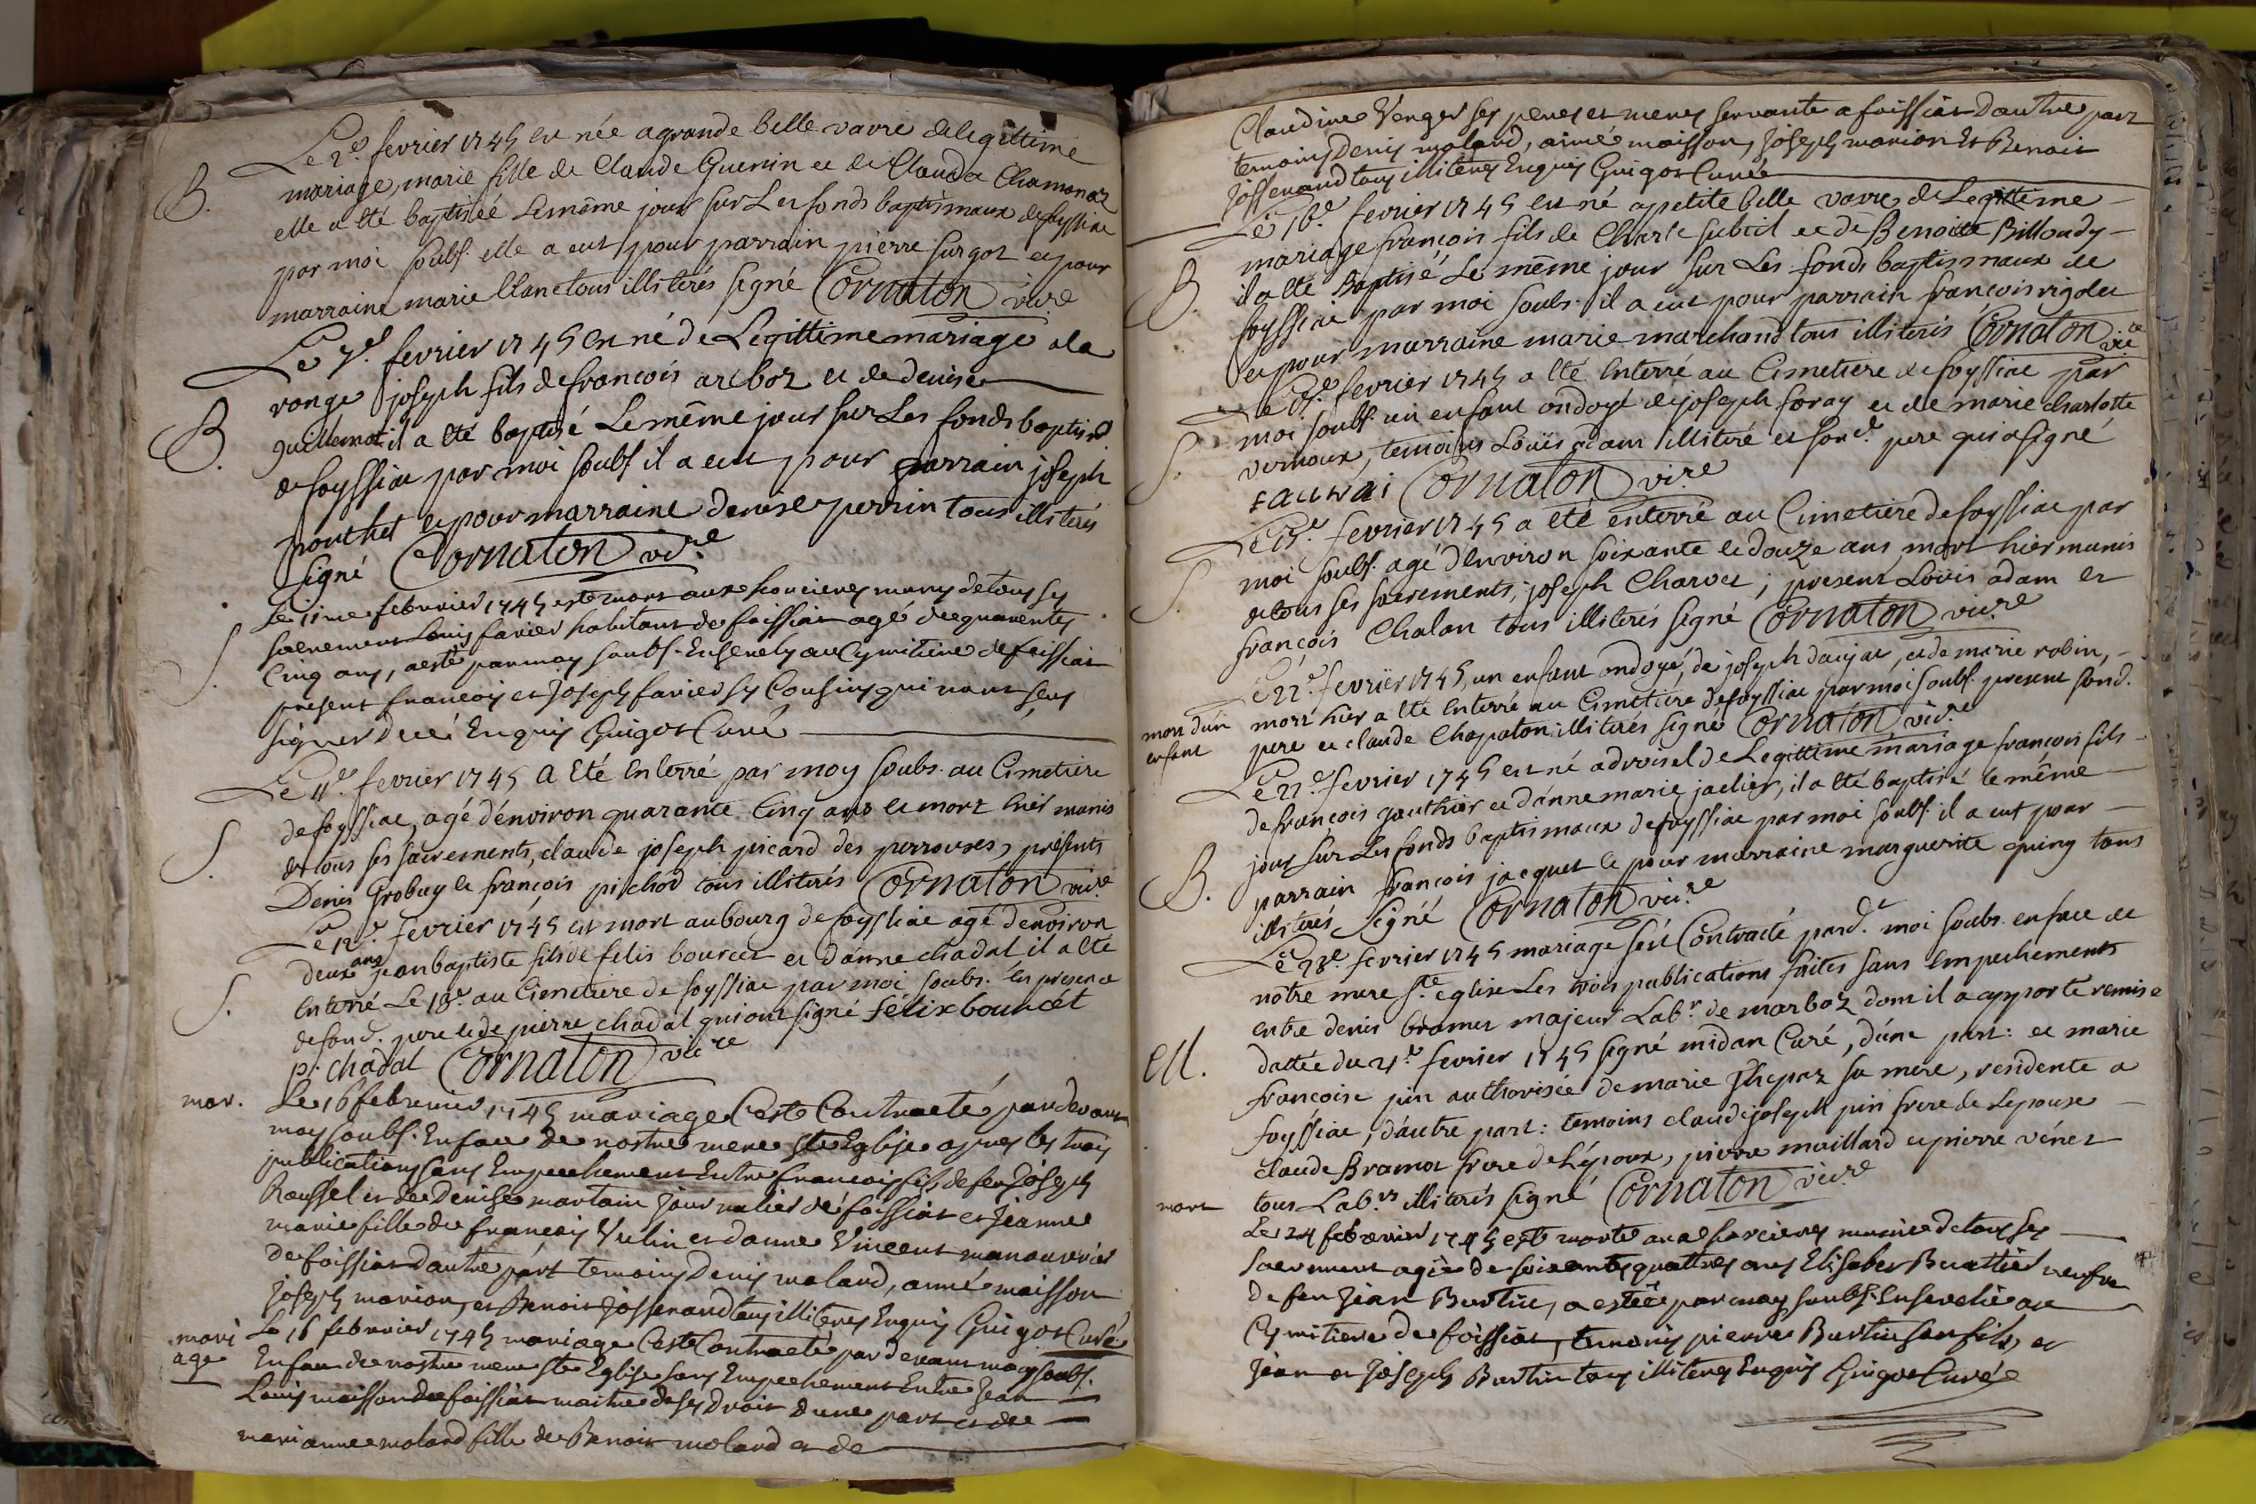 Le 2e fevrier 1745 est née a grande belle vavre de legittime
B. mariage, marie fille de Claude Guerin et de Clauda Chamonar
elle a été baptisée le même jour sur Les fonds baptismaux de foyssiac
par moi soubs. elle a eut pour parrain pierre surgot et pour
marraine marie blanc tous illiterés signé Cornaton vic.re
Le 7e fevrier 1745 est né de Legittime mariage a la
ronge joseph fils de françois arcboz et de denise
B. guillemot il a été baptisé Le même jour sur Les fonds baptism
de foyssiac par moi soubs. il a eut pour parrain joseph
pouthet et pour marraine denise perrin tous illiterés
signé Cornaton vic.re
Le 11me febvrier 1745 est mort aux sorcieres muny de tous ses
S. sacrement Louis favier habitant de foissiat agé de quarente
Cinq ans, a esté par moy soubs. Ensevely au Cymitiere de foissiat
present francois et Joseph favier ses Cousins qui n'ont sceu
signer de ce Enquis Guigot Curé
Le 11e fevrier 1745 a été enterré par moy soubs. au Cimetiere
S. de foyssiac, agé d'environ quarante Cinq ans et mort hier munis
de tous ses sacrements, claude joseph picard des perrouses, présents
Denis Grobuy et françois pichod tous illiterés Cornaton vic.re
Le 12e fevrier 1745 est mort au bourg de foyssiac agé d'environ
deux ans jean baptiste fils de felis bourcet et d'anne chadal il a été
S. enterré Le 13e au Cimetiere de foyssiac par moi soubs. en presence
de sond. pere et de pierre chadal qui ont signé félix bourcet
p. chadal Cornaton vic.re
mar. Le 16 febvrier 1745 mariage C'este Contracté par devant
moy soubs. En face de nostre mere ste Eglise apres les trois
publications sans Empechement Entre francois fils de feu Joseph
Roussel et de Denise martain journalier de foissiat et Jeanne
marie fille de francois Vulin et d'anne Vincent manouvrier
de foissiat d'autre part temoins Denis moland, aimé moisson
Joseph marion, et Benoit Josserand tous illiteres Enquis Guigot Curé
mari Le 16 febvrier 1745 mariage C'este Contracté par devant moy soubs.
age En face de nostre mere ste Eglise sans Empechement Entre Jean
Louis moisson de foissiat maitre de ses droit d'une part et de
marianne moland fille de Benoit moland et de
Claudine Venger ses peres et meres servante a foissiat d'autre part
temoins Denis moland, aimé moisson, Joseph marion Et Benoit
Josserand tous illiteres Enquis Guigot Curé
Le 16e fevrier 1745 est né a petite belle vavre de Legittime
mariage françois fils de Charle subtil et de Benoitte Billoudy
B. il a été Baptisé Le même jour sur Les fonds baptismaux de
foyssiac par moi soubs. il a eut pour parrain françois rigolet
et pour marraine marie marchand tous illiterés Cornaton vic.re
fevrier 1745 a été enterré au Cimetiere de foyssiac par
S. moi soubs. un enfant ondoyé de joseph foray et de marie charlotte
vernoux, temoins Louis adam illiteré et sond. pere qui a signé
Cornaton vic.re
fevrier 1745 a été enterré au Cimetiere de foyssiac par
S. moi soubs. agé d'environ soixante et douze ans mort hier munis
de tous ses sacrements, joseph Charvet; present Loüis adam et
françois Chalan tous illiterés signé Cornaton vic.re
Le 22e fevrier 1745, un enfant ondoyé, de joseph daujat, et de marie robin,
mort d'un mort hier a été enterré au Cimetiere de foyssiac par moi soubs. present sond.
enfant pere et claude Chapaton illiterés signé Cornaton vic.re
Le 22e fevrier 1745 est né a droisel de Legittime mariage françois fils
de françois gauthier et d'anne marie jaclier, il a été baptisé le même
B. jour sur Les fonds baptismaux de foyssiac par moi soubs. il a eut pour
parrain françois jacquet et pour marraine marguerite quing tous
illiterés signé Cornaton vic.re
Le 23e fevrier 1745 mariage s'est Contracté pard. moi soubs. en face de
nôtre mere ste eglise Les trois publications faites sans empechements
entre denis bramet majeur Labr. de marboz dont il a apporté remise
M. dattée du 21e fevrier 1745 signé midan Curé, d'une part: et marie
françoise pin authorisée de marie thepaz sa mere, residente a
foyssiac, d'autre part: temoins claude joseph pin frere de Lepouse
claude Bramet frere de L'époux, pierre maillard et pierre vénet
tous Labrs illiterés signé Cornaton vic.re
mort Le 24 febvrier 1745 este morte aux sorcieres munie de tous ses
sacrement agée de soixante quattres ans Elisabet Burtie veufve
de feu Jean Burtin, a estée par moy soubs. Ensevelie au
Cymitiere de foissiat, temoins pierre Burtin son fils, et
Jean et Joseph Burtin tous illiteres Enquis Guigot Curé